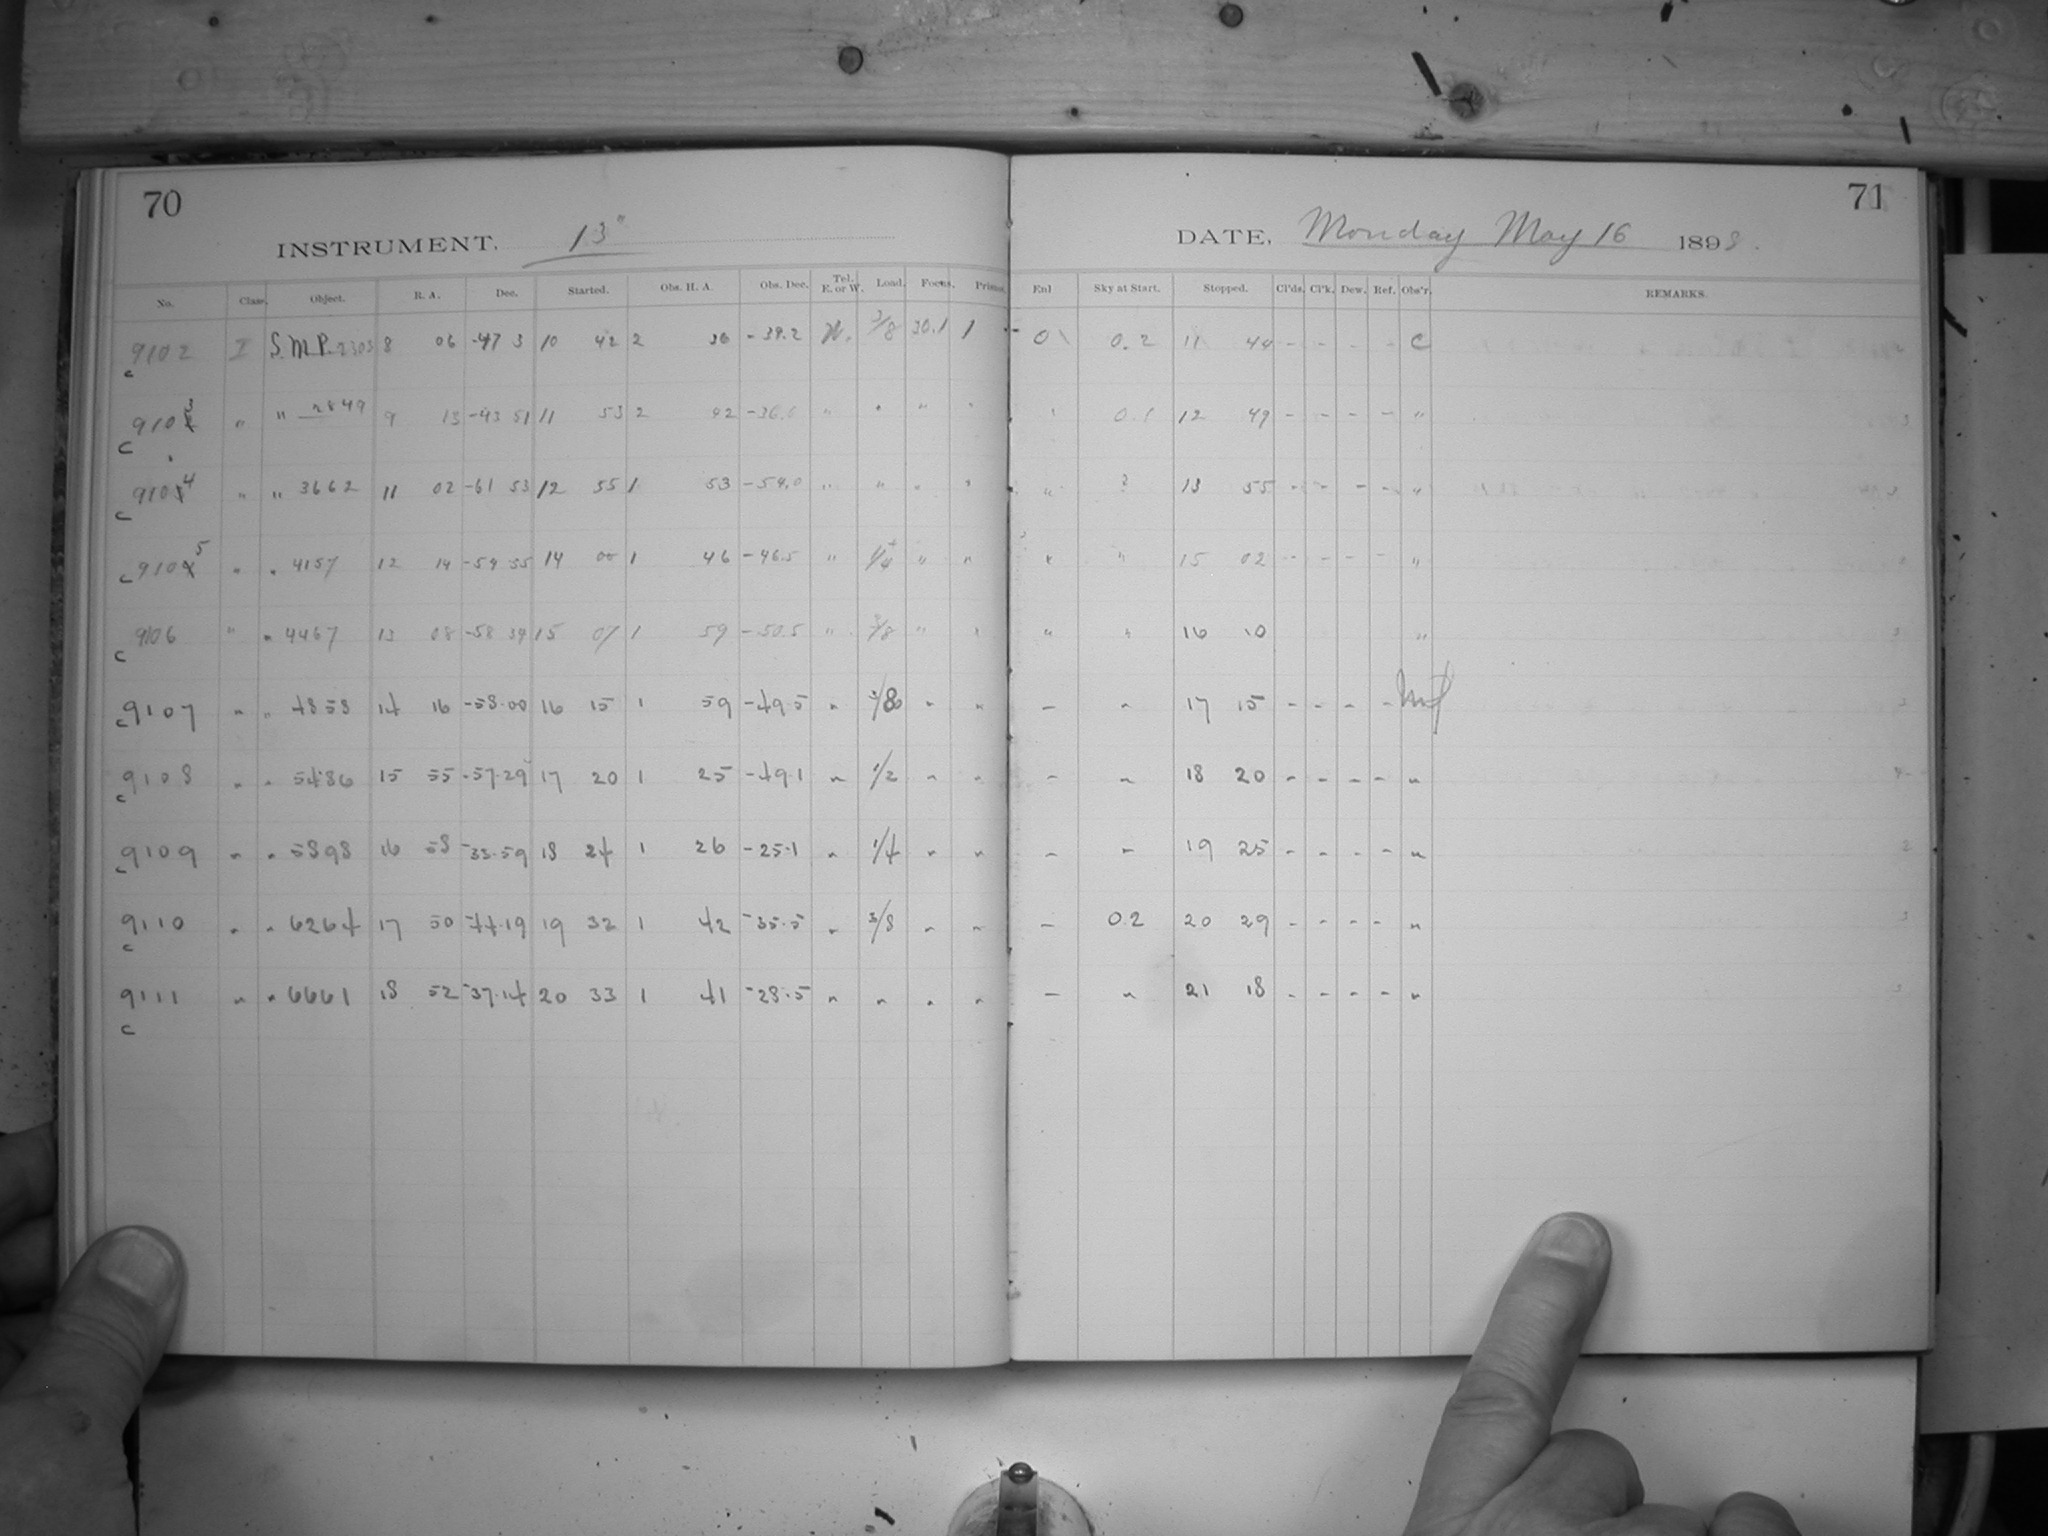 70
71
INSTRUMENT. 13"
DATE, Monday May 16 1898.
No. Class. Object. R. A. Dec. Started. Obs. H. A. Obs. Dec. Tel. E. or W. Load. Focus. Prisms. Enl Sky at Start. Stopped. Cl'ds. Cl'k. Dew. Ref. Obs'r. REMARKS.
9102 I S.M.P. 2303 8 06 -47 3 10 42 2 36 -39.2 W. 3/8 30.1 1 - 0 0.2 11 44 - - - - C
c
9103 " " 2849 9 13 -43 51 11 53 2 42 -36.6 " " " " " 0.1 12 49 - - - - "
c
9104 " " 3662 11 02 -61 53 12 55 1 53 -54.0 " " " " " ? 13 55 - - - - "
c
c 9105 " " 4157 12 14 -59 55 14 00 1 46 -46.5 " 1/4 " " " " 15 02 - - - - "
9106 " " 4467 13 08 -58 39 15 07 1 59 -50.5 " 3/8 " " " " 16 10 "
c
c 9107 " " 4858 14 16 -58.00 16 15 1 59 -49.5 " 3/8 " " - " 17 15 - - - -
9108 " " 5486 15 55 -57.29 17 20 1 25 -49.1 " 1/2 " " - " 18 20 - - - - "
c
c 9109 " " 5898 16 58 -33.59 18 24 1 26 -25.1 " 1/4 " " - " 19 25 - - - - "
9110 " " 6264 17 50 -44.19 19 32 1 42 -35.5 " 3/8 " " - 0.2 20 29 - - - - "
c
9111 " " 6661 18 52 -37.14 20 33 1 41 -28.5 " " " " - " 21 18 - - - - "
c